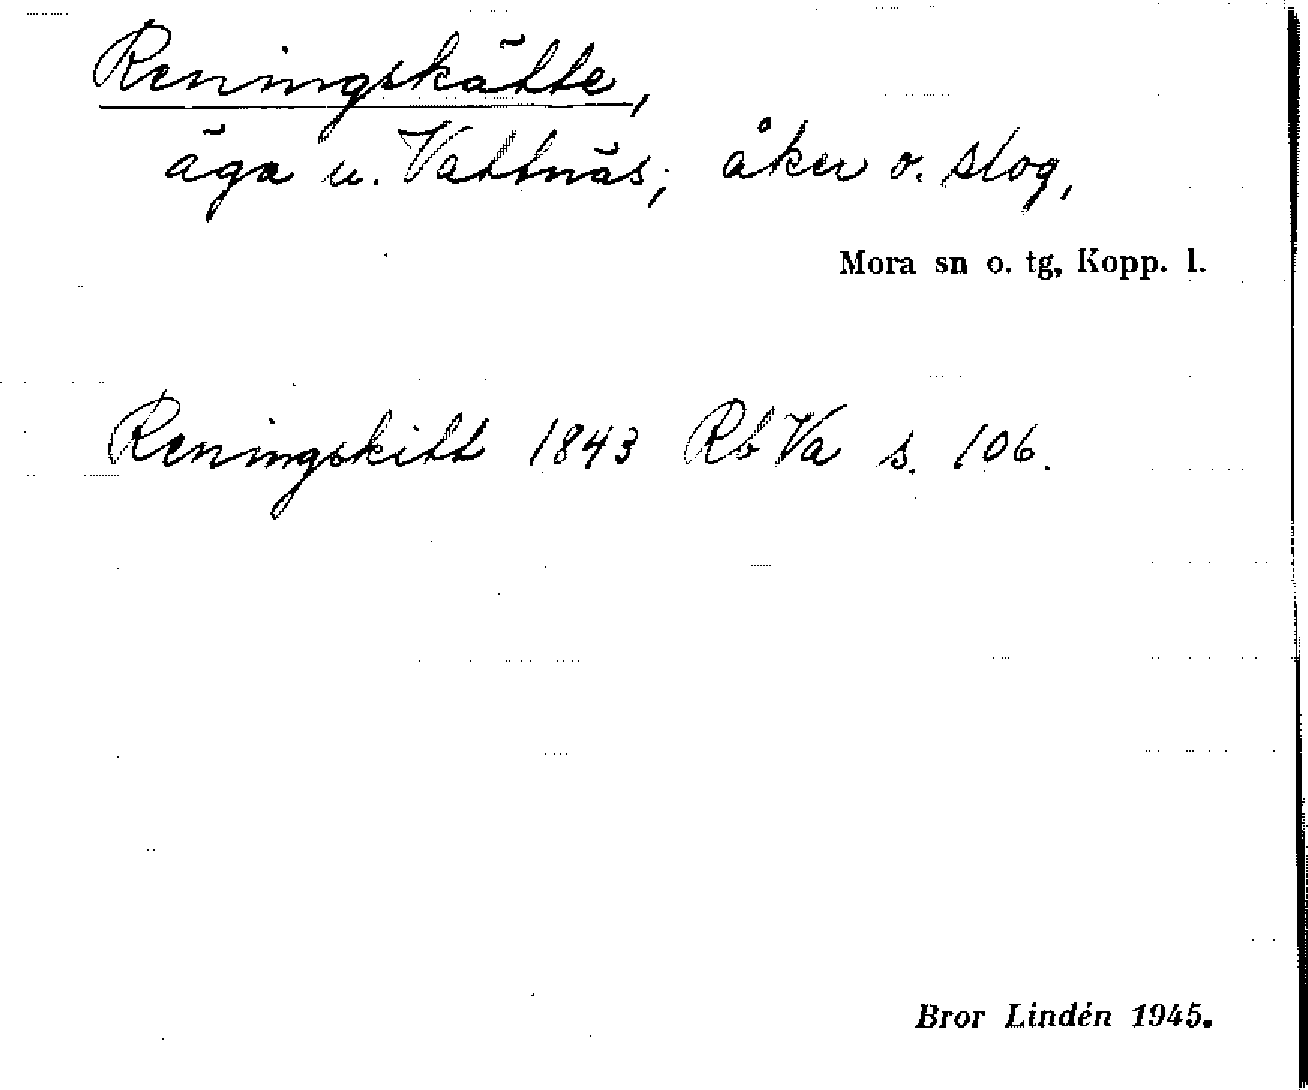 Reningskätte,
äga u. Vattnäs; åker o. slog,
Mora sn o. tg, Kopp. l.
Reningskitt 1843 Rb Va s. 106.
Bror Lindén 1945.